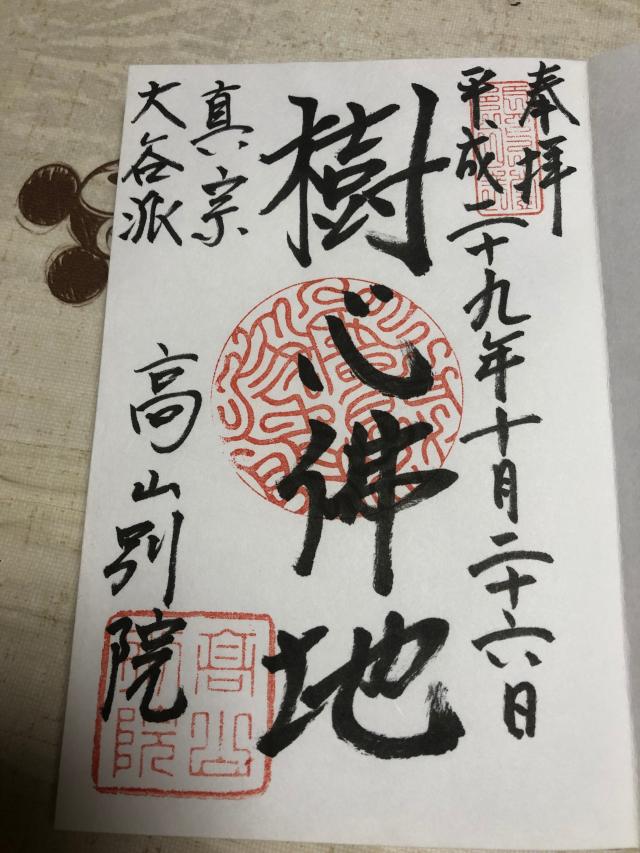 奉拝
平成二十九年十月二十六日
樹心佛地
真宗
大谷派
高山別院
高山
別院